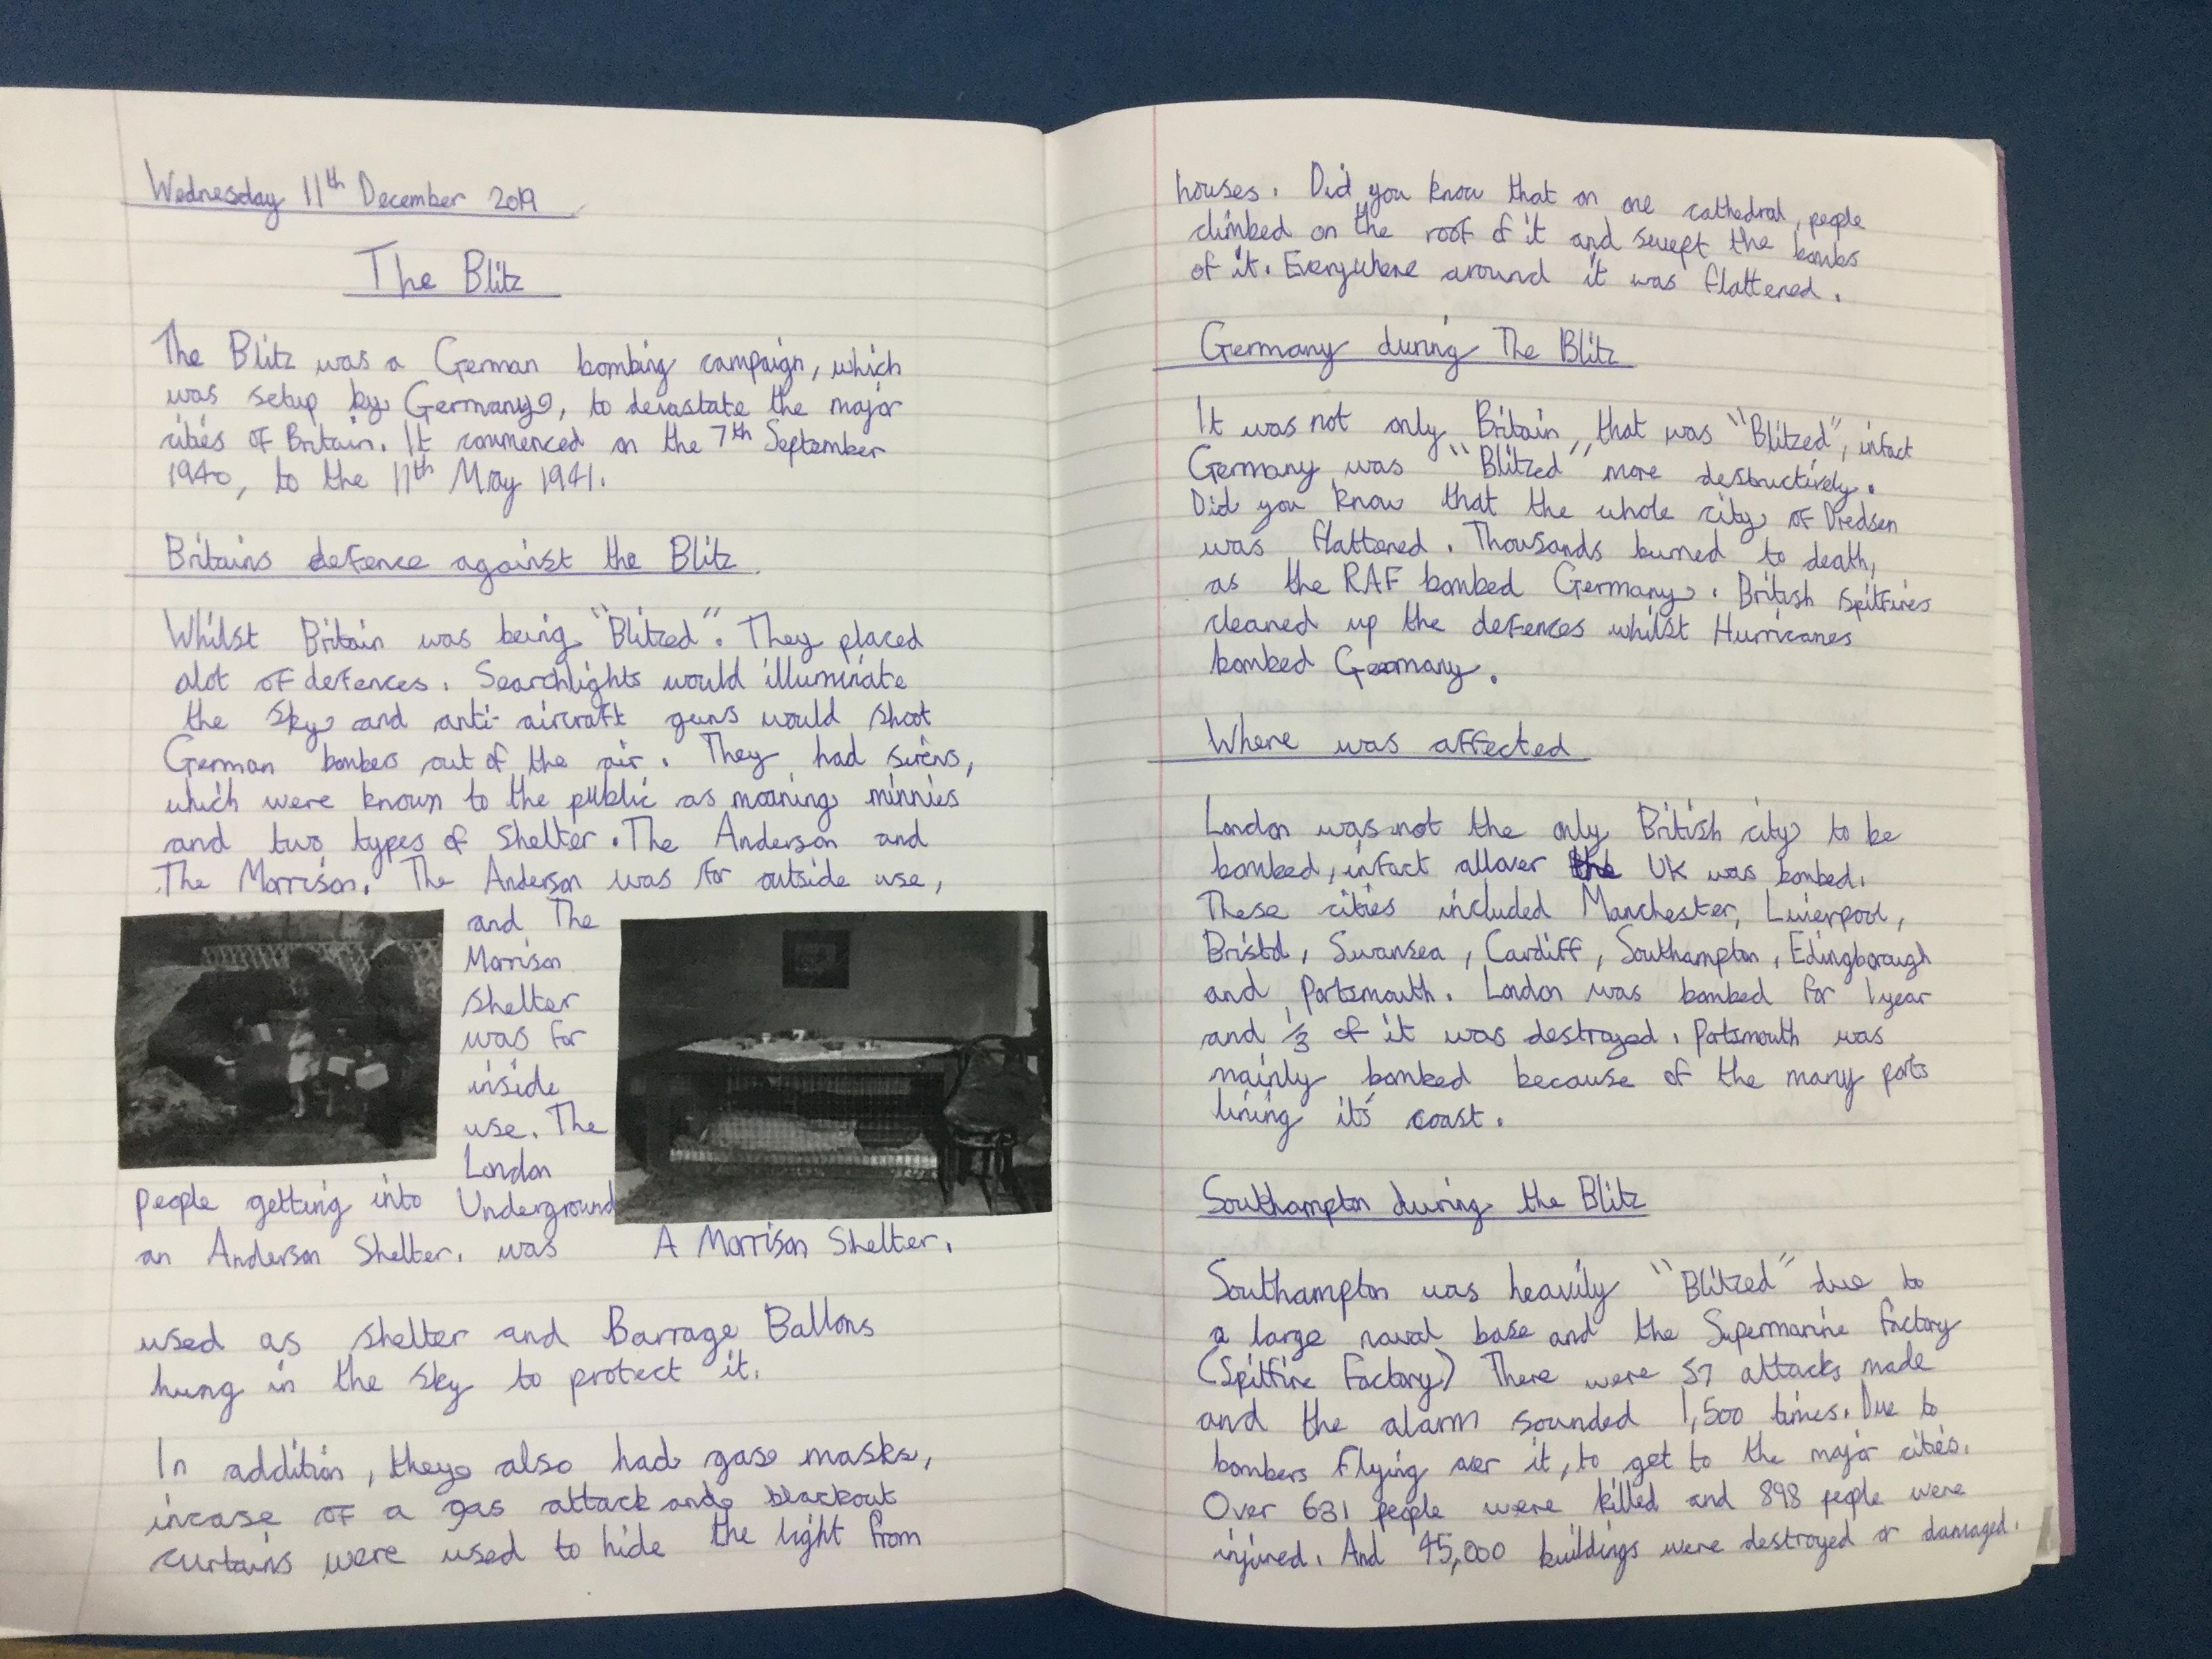 Wednesday 11th December 2019
The Blitz
The Blitz was a German bombing campaign, which
was setup by Germany, to devastate the major
cities of Britain. It commenced on the 7th September
1940, to the 11th May 1941.
Britains defence against the Blitz
Whilst Britain was being "Blitzed". They placed
alot of defences. Searchlights would illuminate
the sky and anti-aircraft guns would shoot
German bombers out of the air. They had sirens,
which were known to the public as moaning minnies
and two types of shelter. The Anderson and
The Morrison. The Anderson was for outside use,
and The
Morrison
shelter
was for
inside
use. The
London
Underground
was
People getting into
an Anderson Shelter.
A Morrison Shelter.
used as shelter and Barrage Ballons
hung in the sky to protect it.
In addition, they also had gase masks,
incase of a gas attack and blackout
curtains were used to hide the light from
houses. Did you know that on one cathedral, people
climbed on the roof of it and swept the bombs
of it. Everywhere around it was flattened.
Germany during The Blitz
It was not only Britain, that was "Blitzed", infact
Germany was "Blitzed" more destructively.
Did you know that the whole city of Dredsen
was flattened. Thousands burned to death,
as the RAF bombed Germany. British spitfires
cleaned up the defences whilst Hurricanes
bombed Germany.
Where was affected
London was not the only British city to be
bombed, infact allover the UK was bombed.
These cities included Manchester, Liverpool,
Bristol, Swansea, Cardiff, Southampton, Edingborough
and Portsmouth. London was bombed for 1 year
and 1/3 of it was destroyed. Portsmouth was
mainly bombed because of the many ports
lining it's coast.
Southampton during the Blitz
Southampton was heavily "Blitzed" due to
a large naval base and the Supermarine factory
(Spitfire Factory) There were 57 attacks made
and the alarm sounded 1,500 times. Due to
bombers flying over it, to get to the major cities.
Over 631 people were killed and 898 people were
injured. And 45,000 buildings were destroyed or damaged.